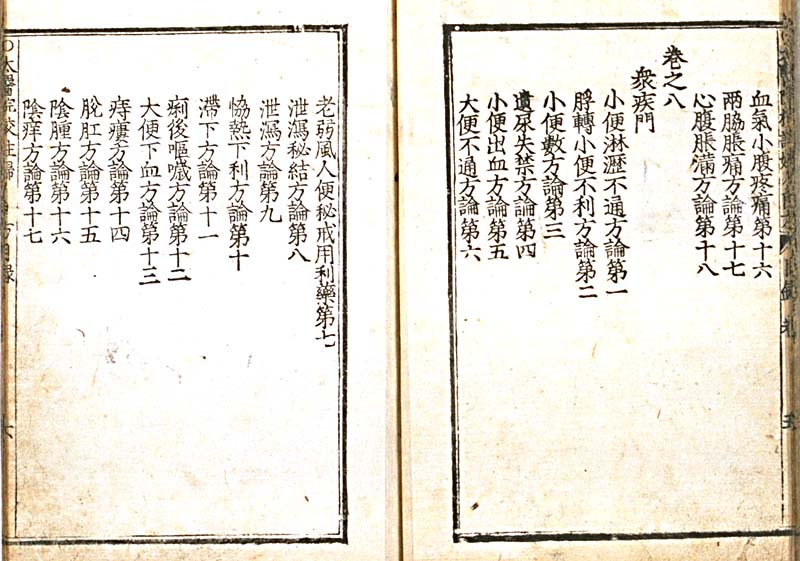 血氣小腹疼痛第十六
兩脇脹痛方論第十七
心腹脹滿方論第十八
卷之八
衆疾門
小便淋瀝不通方論第一
脬轉小便不利方論第二
小便數方論第三
遺尿失禁方論第四
小便出血方論第五
大便不通方論第六
老弱風人便秘戒用利藥第七
泄瀉秘結方論第八
泄瀉方論第九
恊熱下利方論第十
滯下方論第十一
痢後嘔噦方論第十二
大便下血方論第十三
痔瘻方論第十四
脫肛方論第十五
陰腫方論第十六
陰痒方論第十七
太醫院校註婦
方目錄
六